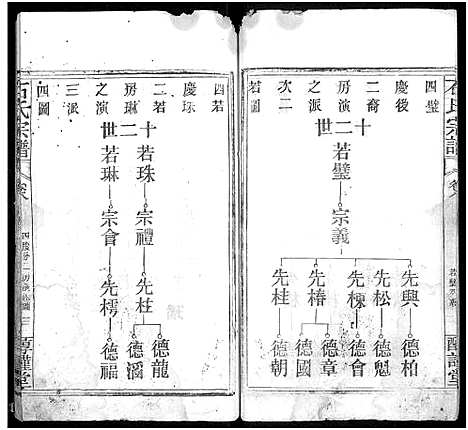 石氏宗譜
卷
四璧
慶後
二裔
房演
之派
次二
若圖
十二世
若璧
宗義
先興
先松
先棟
先椿
先桂
德柏
德魁
德會
德章
德國
德朝
四若
慶珠
二若
房琳
之演
三派
四圖
十二世
若珠
若琳
宗禮
宗會
先柱
先樗
德龍
德滔
德福
石氏宗譜
卷八